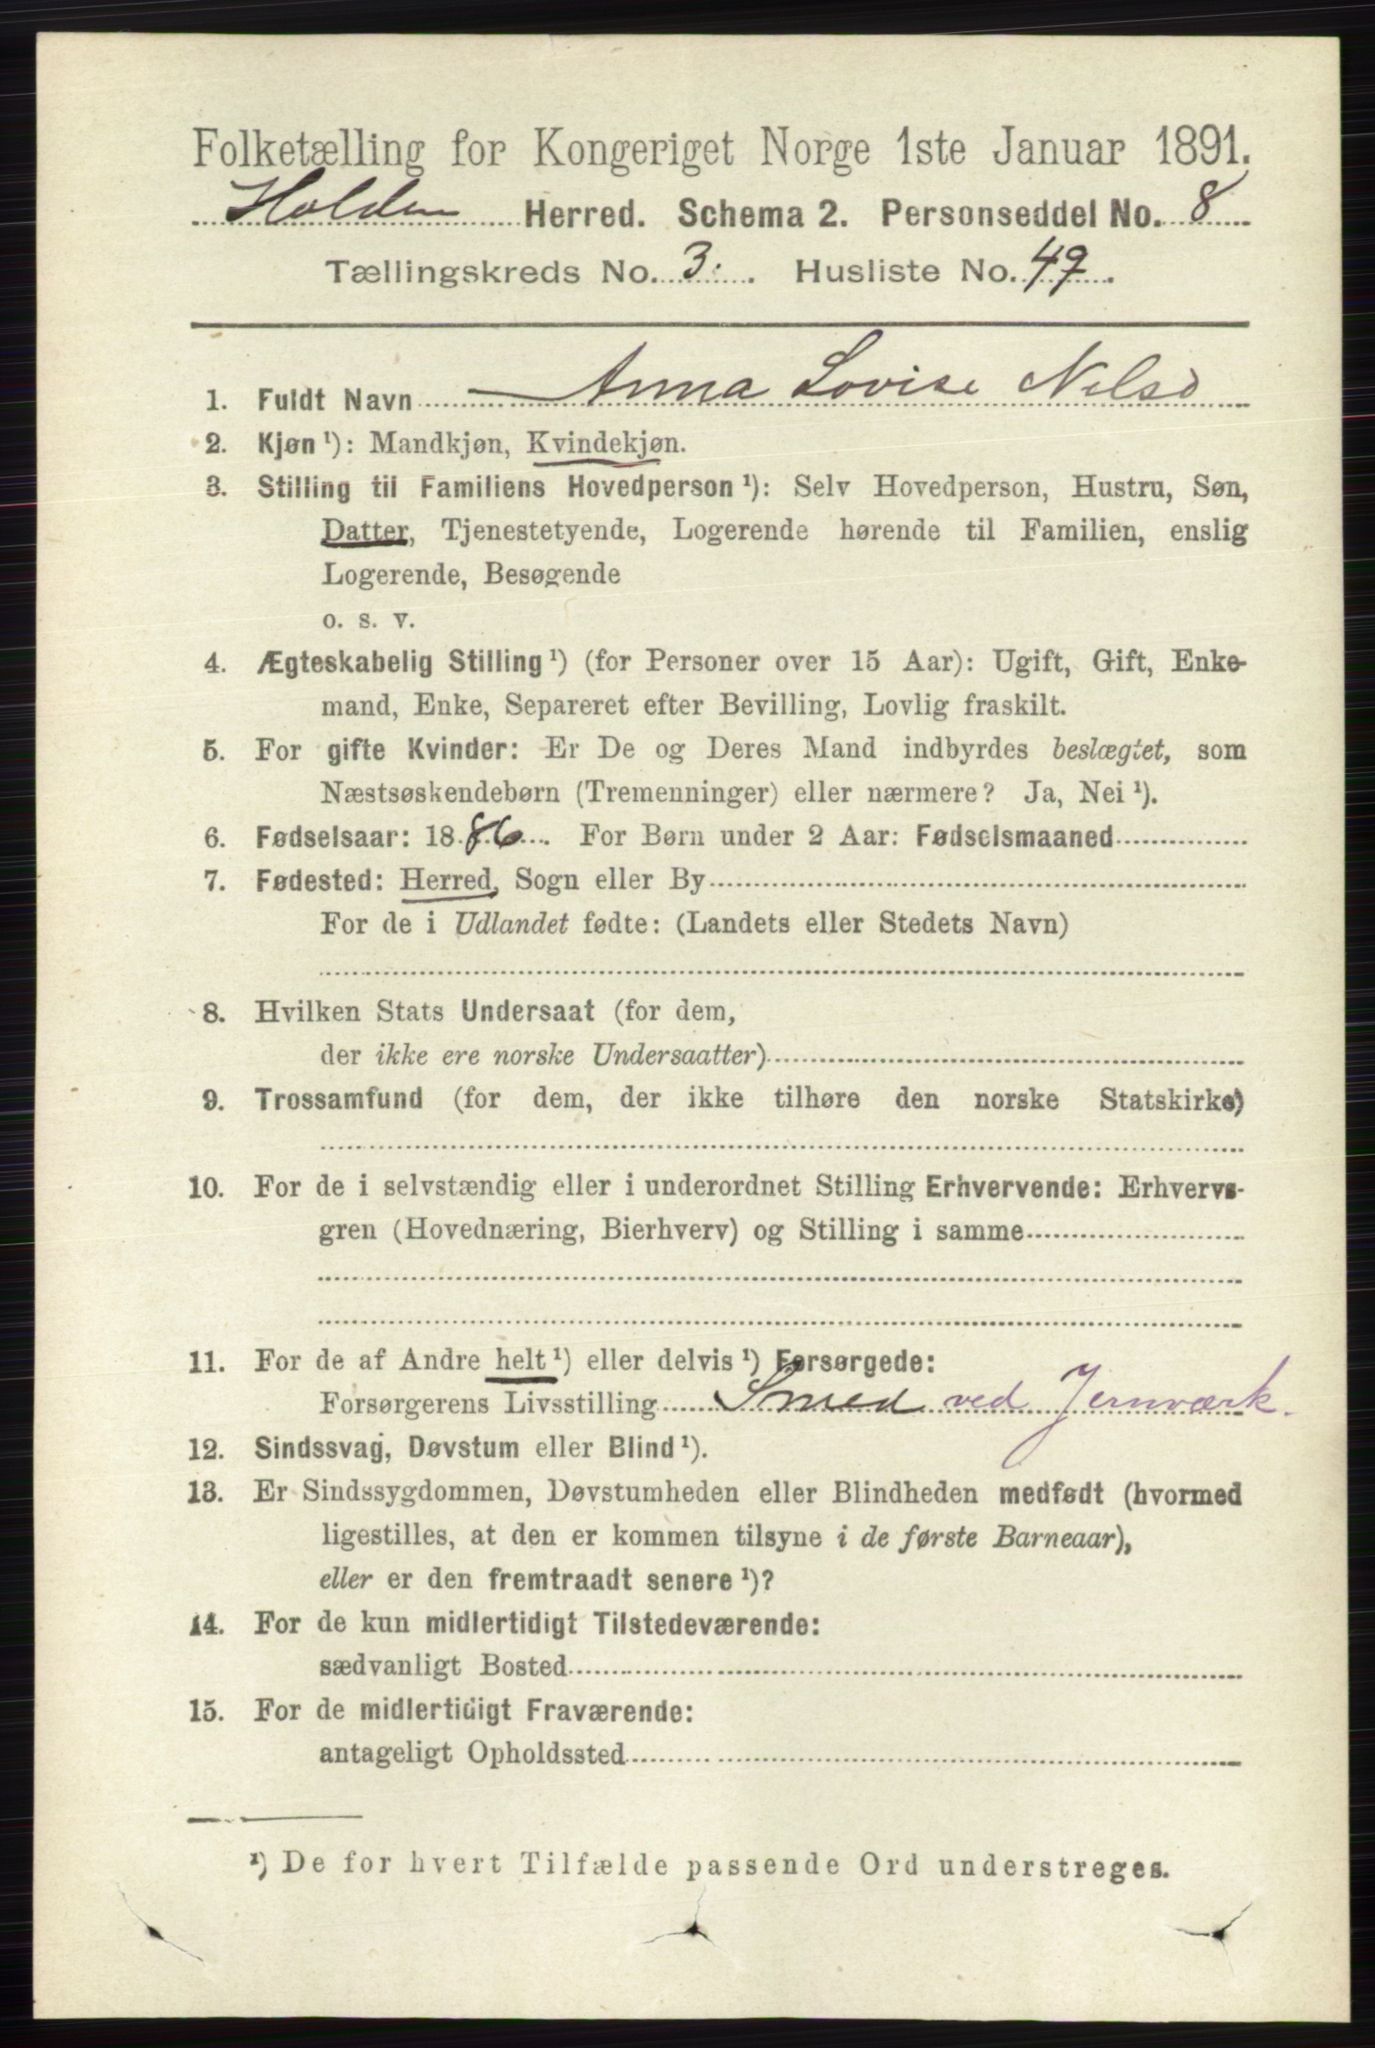 Folketælling for Kongeriget Norge 1ste Januar 1891.
Holden Herred. Schema 2. Personseddel No. 8
Tællingskreds No. 3. Husliste No. 49.
1. Fuldt Navn Anna Lovise Nelsd
2. Kjøn ¹): Mandkjøn, Kvindekjøn.
3. Stilling til Familiens Hovedperson ¹): Selv Hovedperson, Hustru, Søn,
Datter, Tjenestetyende, Logerende hørende til Familien, enslig
Logerende, Besøgende
o. s. v.
4. Ægteskabelig Stilling ¹) (for Personer over 15 Aar): Ugift, Gift, Enke-
mand, Enke, Separeret efter Bevilling, Lovlig fraskilt.
5. For gifte Kvinder: Er De og Deres Mand indbyrdes beslægtet, som
Næstsøskendebørn (Tremenninger) eller nærmere? Ja, Nei ¹).
6. Fødselsaar: 1886. For Børn under 2 Aar: Fødselsmaaned
7. Fødested: Herred, Sogn eller By
For de i Udlandet fødte: (Landets eller Stedets Navn)
8. Hvilken Stats Undersaat (for dem,
der ikke ere norske Undersaatter)
9. Trossamfund (for dem, der ikke tilhøre den norske Statskirke)
10. For de i selvstændig eller i underordnet Stilling Erhvervende: Erhvervs-
gren (Hovednæring, Bierhverv) og Stilling i samme
11. For de af Andre helt ¹) eller delvis ¹) Forsørgede:
Forsørgerens Livsstilling Smed ved Jernværk.
12. Sindssvag, Døvstum eller Blind ¹).
13. Er Sindssygdommen, Døvstumheden eller Blindheden medfødt (hvormed
ligestilles, at den er kommen tilsyne i de første Barneaar),
eller er den fremtraadt senere ¹)?
14. For de kun midlertidigt Tilstedeværende:
sædvanligt Bosted
15. For de midlertidigt Fraværende:
antageligt Opholdssted
¹) De for hvert Tilfælde passende Ord understreges.